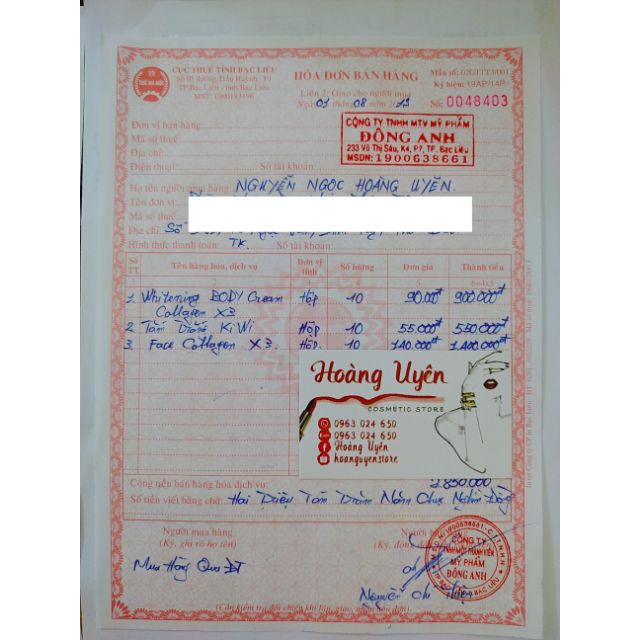 CỤC THUẾ TỈNH BẠC LIÊU
Số 05 đường Trần Huỳnh - P.1
TP Bạc Liêu - tỉnh Bạc Liêu
HÓA ĐƠN BÁN HÀNG
Liên 2: Giao cho người mua
Ngày 01 tháng 08 năm 2019
Mẫu số: 02GTTT3/001
Ký hiệu: 19AP/14P
Số: 0048403
Đơn vị bán hàng:
Mã số thuế:
Địa chỉ:
Điện thoại: Số tài khoản:
CÔNG TY TNHH MTV MỸ PHẨM
ĐÔNG ANH
233 Võ Thị Sáu, K4, P7, TP. Bạc Liêu
MSDN: 1900638661
Họ tên người mua hàng NGUYỄN NGỌC HOÀNG UYÊN.
Tên đơn vị:
Mã số thuế:
Địa chỉ: Số
Hình thức thanh toán: TK. Số tài khoản:
Số TT Tên hàng hóa, dịch vụ Đơn vị tính Số lượng Đơn giá Thành tiền
1. Whitening BODY Cream Collagen X3 Hộp 10 90.000đ 900.000đ
2 Tắm Trắng KiWi Hộp 10 55.000đ 550.000đ
3. Face Collagen X3. Hộp 10 140.000đ 1.400.000đ
Hoàng Uyên
COSMETIC STORE
0963 024 650
0963 024 650
Hoàng Uyên
hoanguyen.store
Cộng tiền bán hàng hóa dịch vụ: 2.850.000
Số tiền viết bằng chữ: Hai Triệu Tám Trăm Năm Chục Nghìn Đồng
Người mua hàng
(Ký, ghi rõ họ tên)
Mua Hàng Qua ĐT
CÔNG TY
MỸ PHẨM
ĐÔNG ANH
(Cần kiểm tra đối chiếu khi lập, giao, nhận hóa đơn)